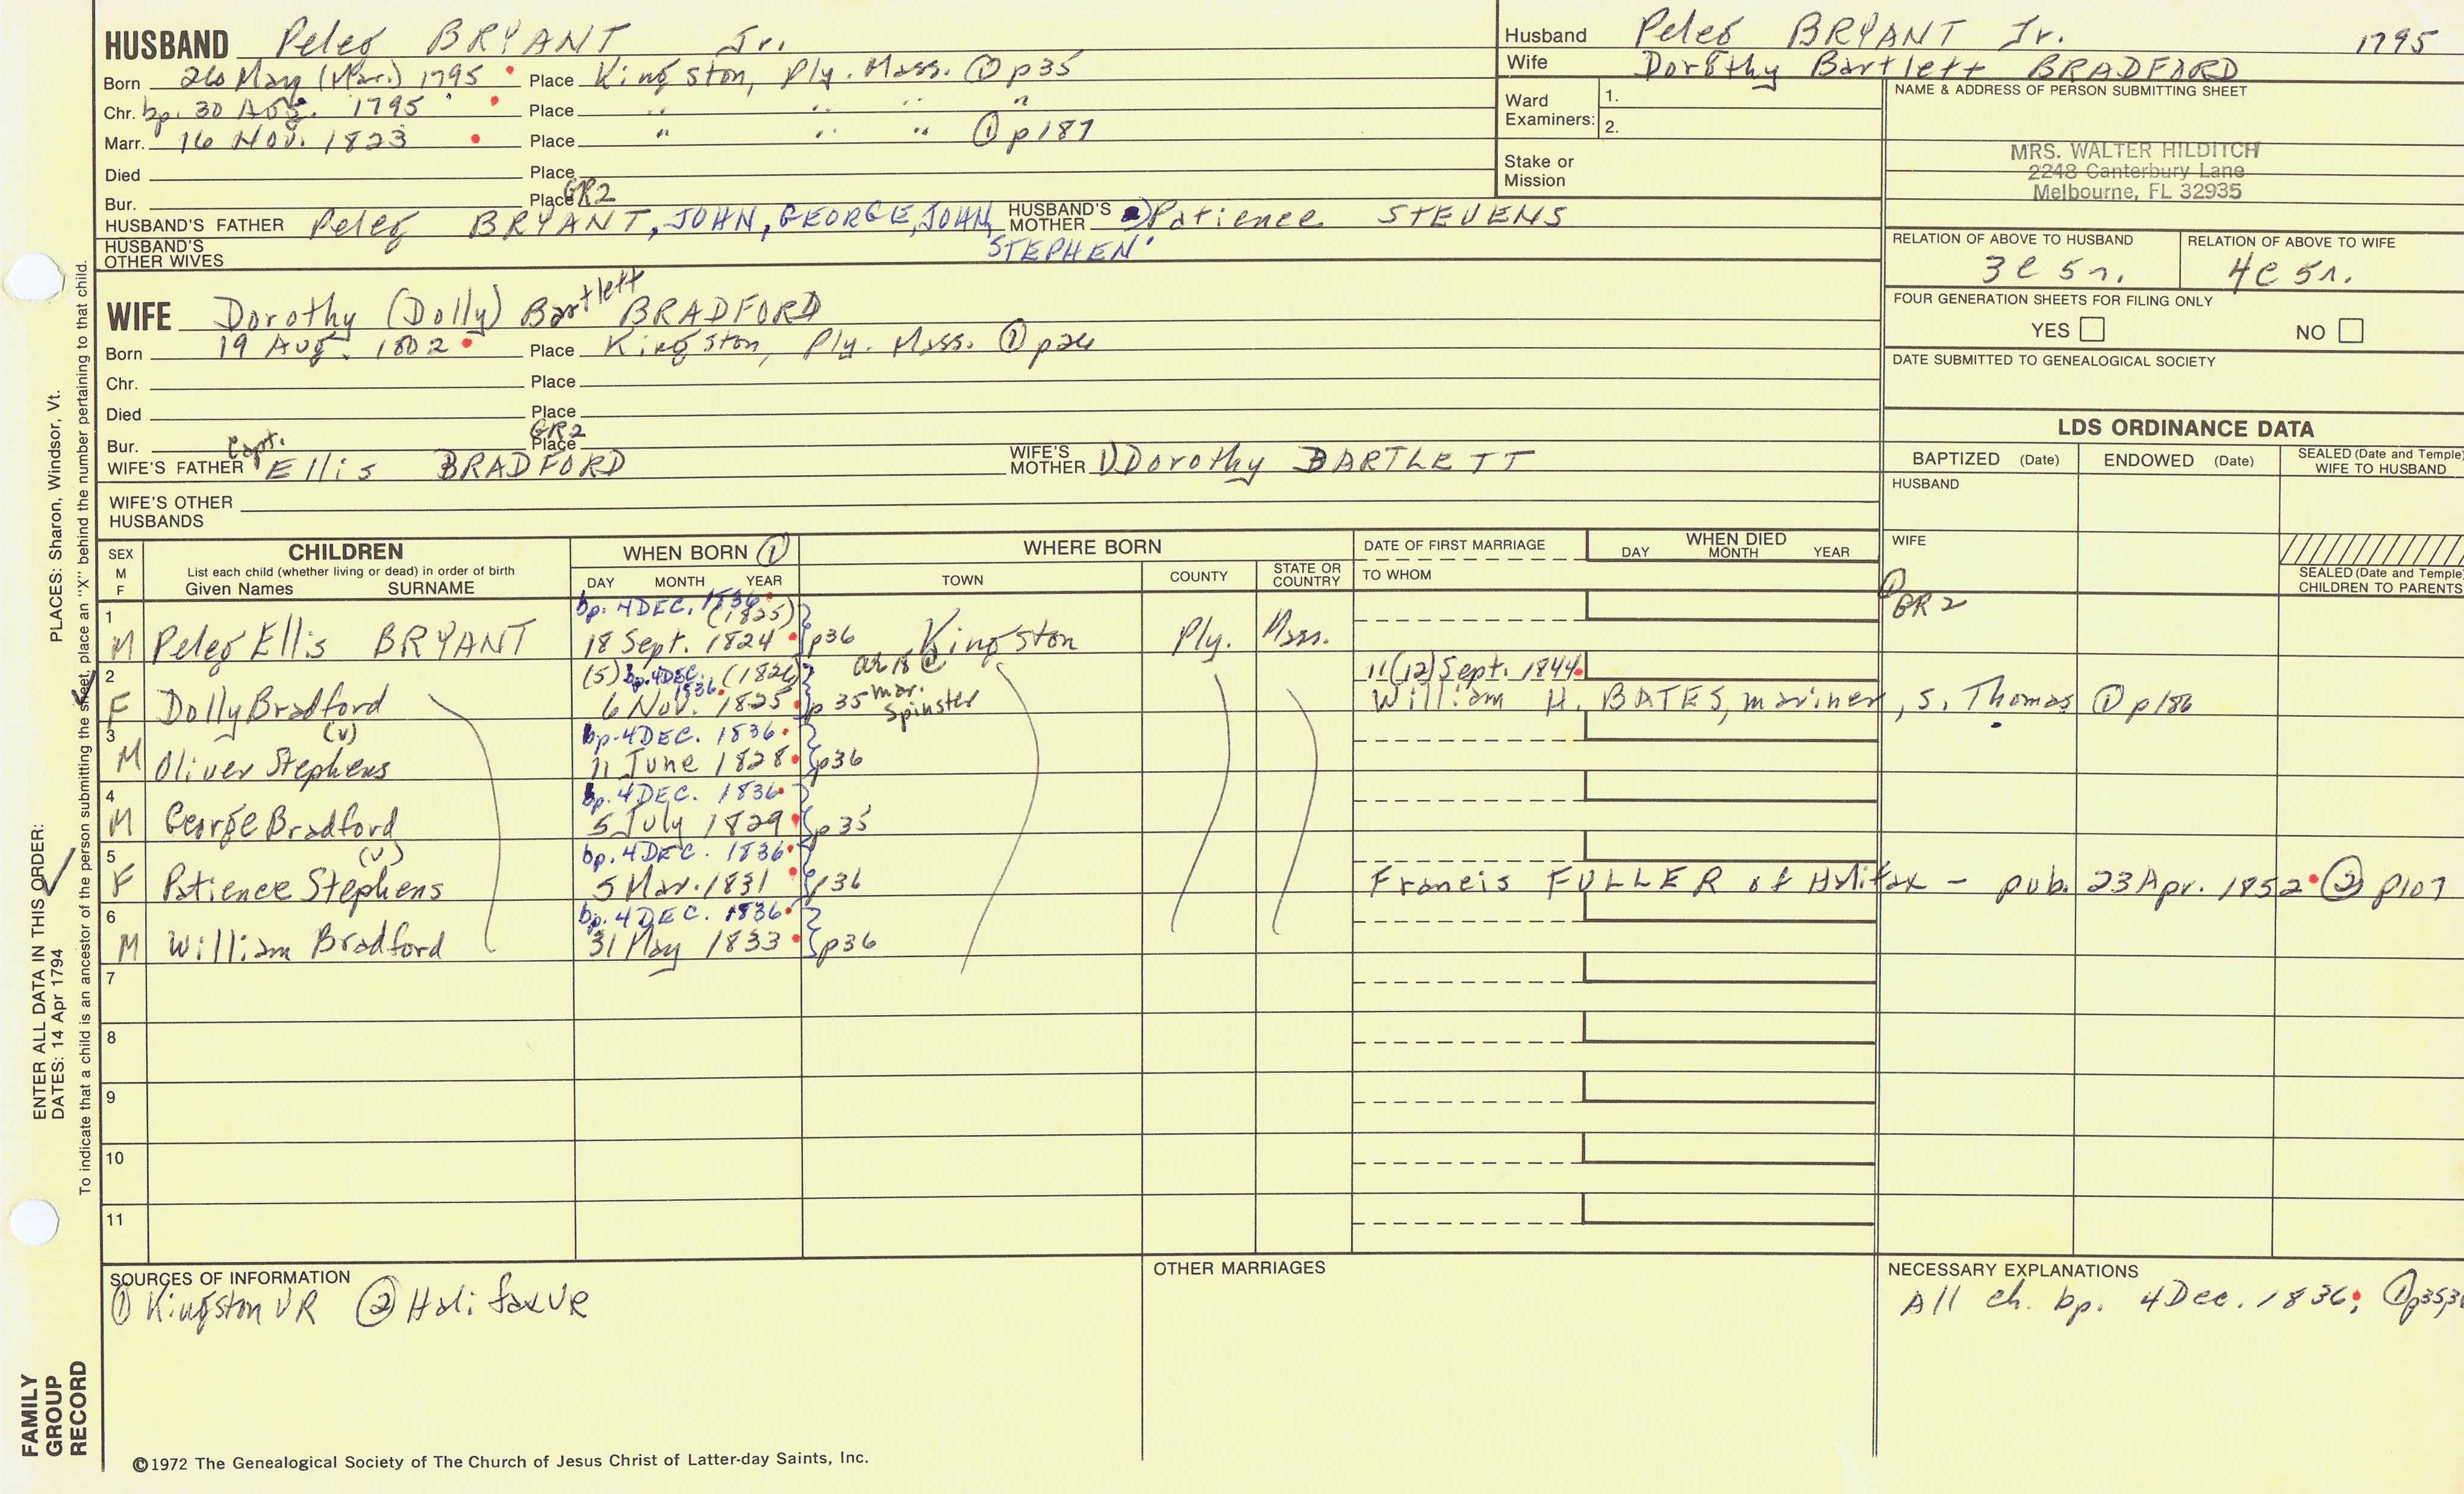 HUSBAND Peleg BRYANT Jr.
Born 26 May (Mar.) 1795 Place Kingston, Ply. Mass. ① p35
Chr. bp. 30 Aug. 1795 Place " " " "
Marr. 16 Nov. 1823 Place " " " ① p187
Died Place
Bur. Place GR2
HUSBAND'S FATHER Peleg BRYANT, JOHN, GEORGE, JOHN, STEPHEN HUSBAND'S MOTHER Patience STEVENS
HUSBAND'S OTHER WIVES
Husband Peleg BRYANT Jr. 1795
Wife Dorothy Bartlett BRADFORD
Ward Examiners: 1.
2.
Stake or Mission
NAME & ADDRESS OF PERSON SUBMITTING SHEET
MRS. WALTER HILDITCH
2248 Canterbury Lane
Melbourne, FL 32935
RELATION OF ABOVE TO HUSBAND RELATION OF ABOVE TO WIFE
3C 5r. 4C 5r.
FOUR GENERATION SHEETS FOR FILING ONLY
YES NO
DATE SUBMITTED TO GENEALOGICAL SOCIETY
WIFE Dorothy (Dolly) Bartlett BRADFORD
Born 19 Aug. 1802 Place Kingston, Ply. Mass. ① p26
Chr. Place
Died Place
Bur. Place GR2
WIFE'S FATHER Capt. Ellis BRADFORD WIFE'S MOTHER 1) Dorothy BARTLETT
WIFE'S OTHER HUSBANDS
LDS ORDINANCE DATA
BAPTIZED (Date) ENDOWED (Date) SEALED (Date and Temple) WIFE TO HUSBAND
HUSBAND
WIFE
SEALED (Date and Temple) CHILDREN TO PARENTS
① GR2
SEX M F CHILDREN List each child (whether living or dead) in order of birth Given Names SURNAME
WHEN BORN ① DAY MONTH YEAR
WHERE BORN TOWN COUNTY STATE OR COUNTRY
DATE OF FIRST MARRIAGE TO WHOM
WHEN DIED DAY MONTH YEAR
1 bp. 4 DEC. 1836 (1825)
M Peleg Ellis BRYANT 18 Sept. 1824 p36 Kingston Ply. Mass.
2 (5) bp. 4 DEC. 1836 (1826) 11(12) Sept. 1844
F Dolly Bradford 6 Nov. 1825 p35 mar. Spinster William H. BATES, mariner, s. Thomas ① p186
3 (v) bp. 4 DEC. 1836
M Oliver Stephens 11 June 1828 p36
4 bp. 4 DEC. 1836
M George Bradford 5 July 1829 p35
5 (v) bp. 4 DEC. 1836
F Patience Stephens 5 Mar. 1831 p36 Francis FULLER of Halifax - pub. 23 Apr. 1852 ② p107
6 bp. 4 DEC. 1836
M William Bradford 31 May 1833 p36
7
8
9
10
11
SOURCES OF INFORMATION
① Kingston VR ② Halifax VR
OTHER MARRIAGES
NECESSARY EXPLANATIONS
All ch. bp. 4 Dec. 1836; ① p35,
©1972 The Genealogical Society of The Church of Jesus Christ of Latter-day Saints, Inc.
FAMILY GROUP RECORD
ENTER ALL DATA IN THIS ORDER:
DATES: 14 Apr 1794 PLACES: Sharon, Windsor, Vt.
To indicate that a child is an ancestor of the person submitting the sheet, place an "X" behind the number pertaining to that child.